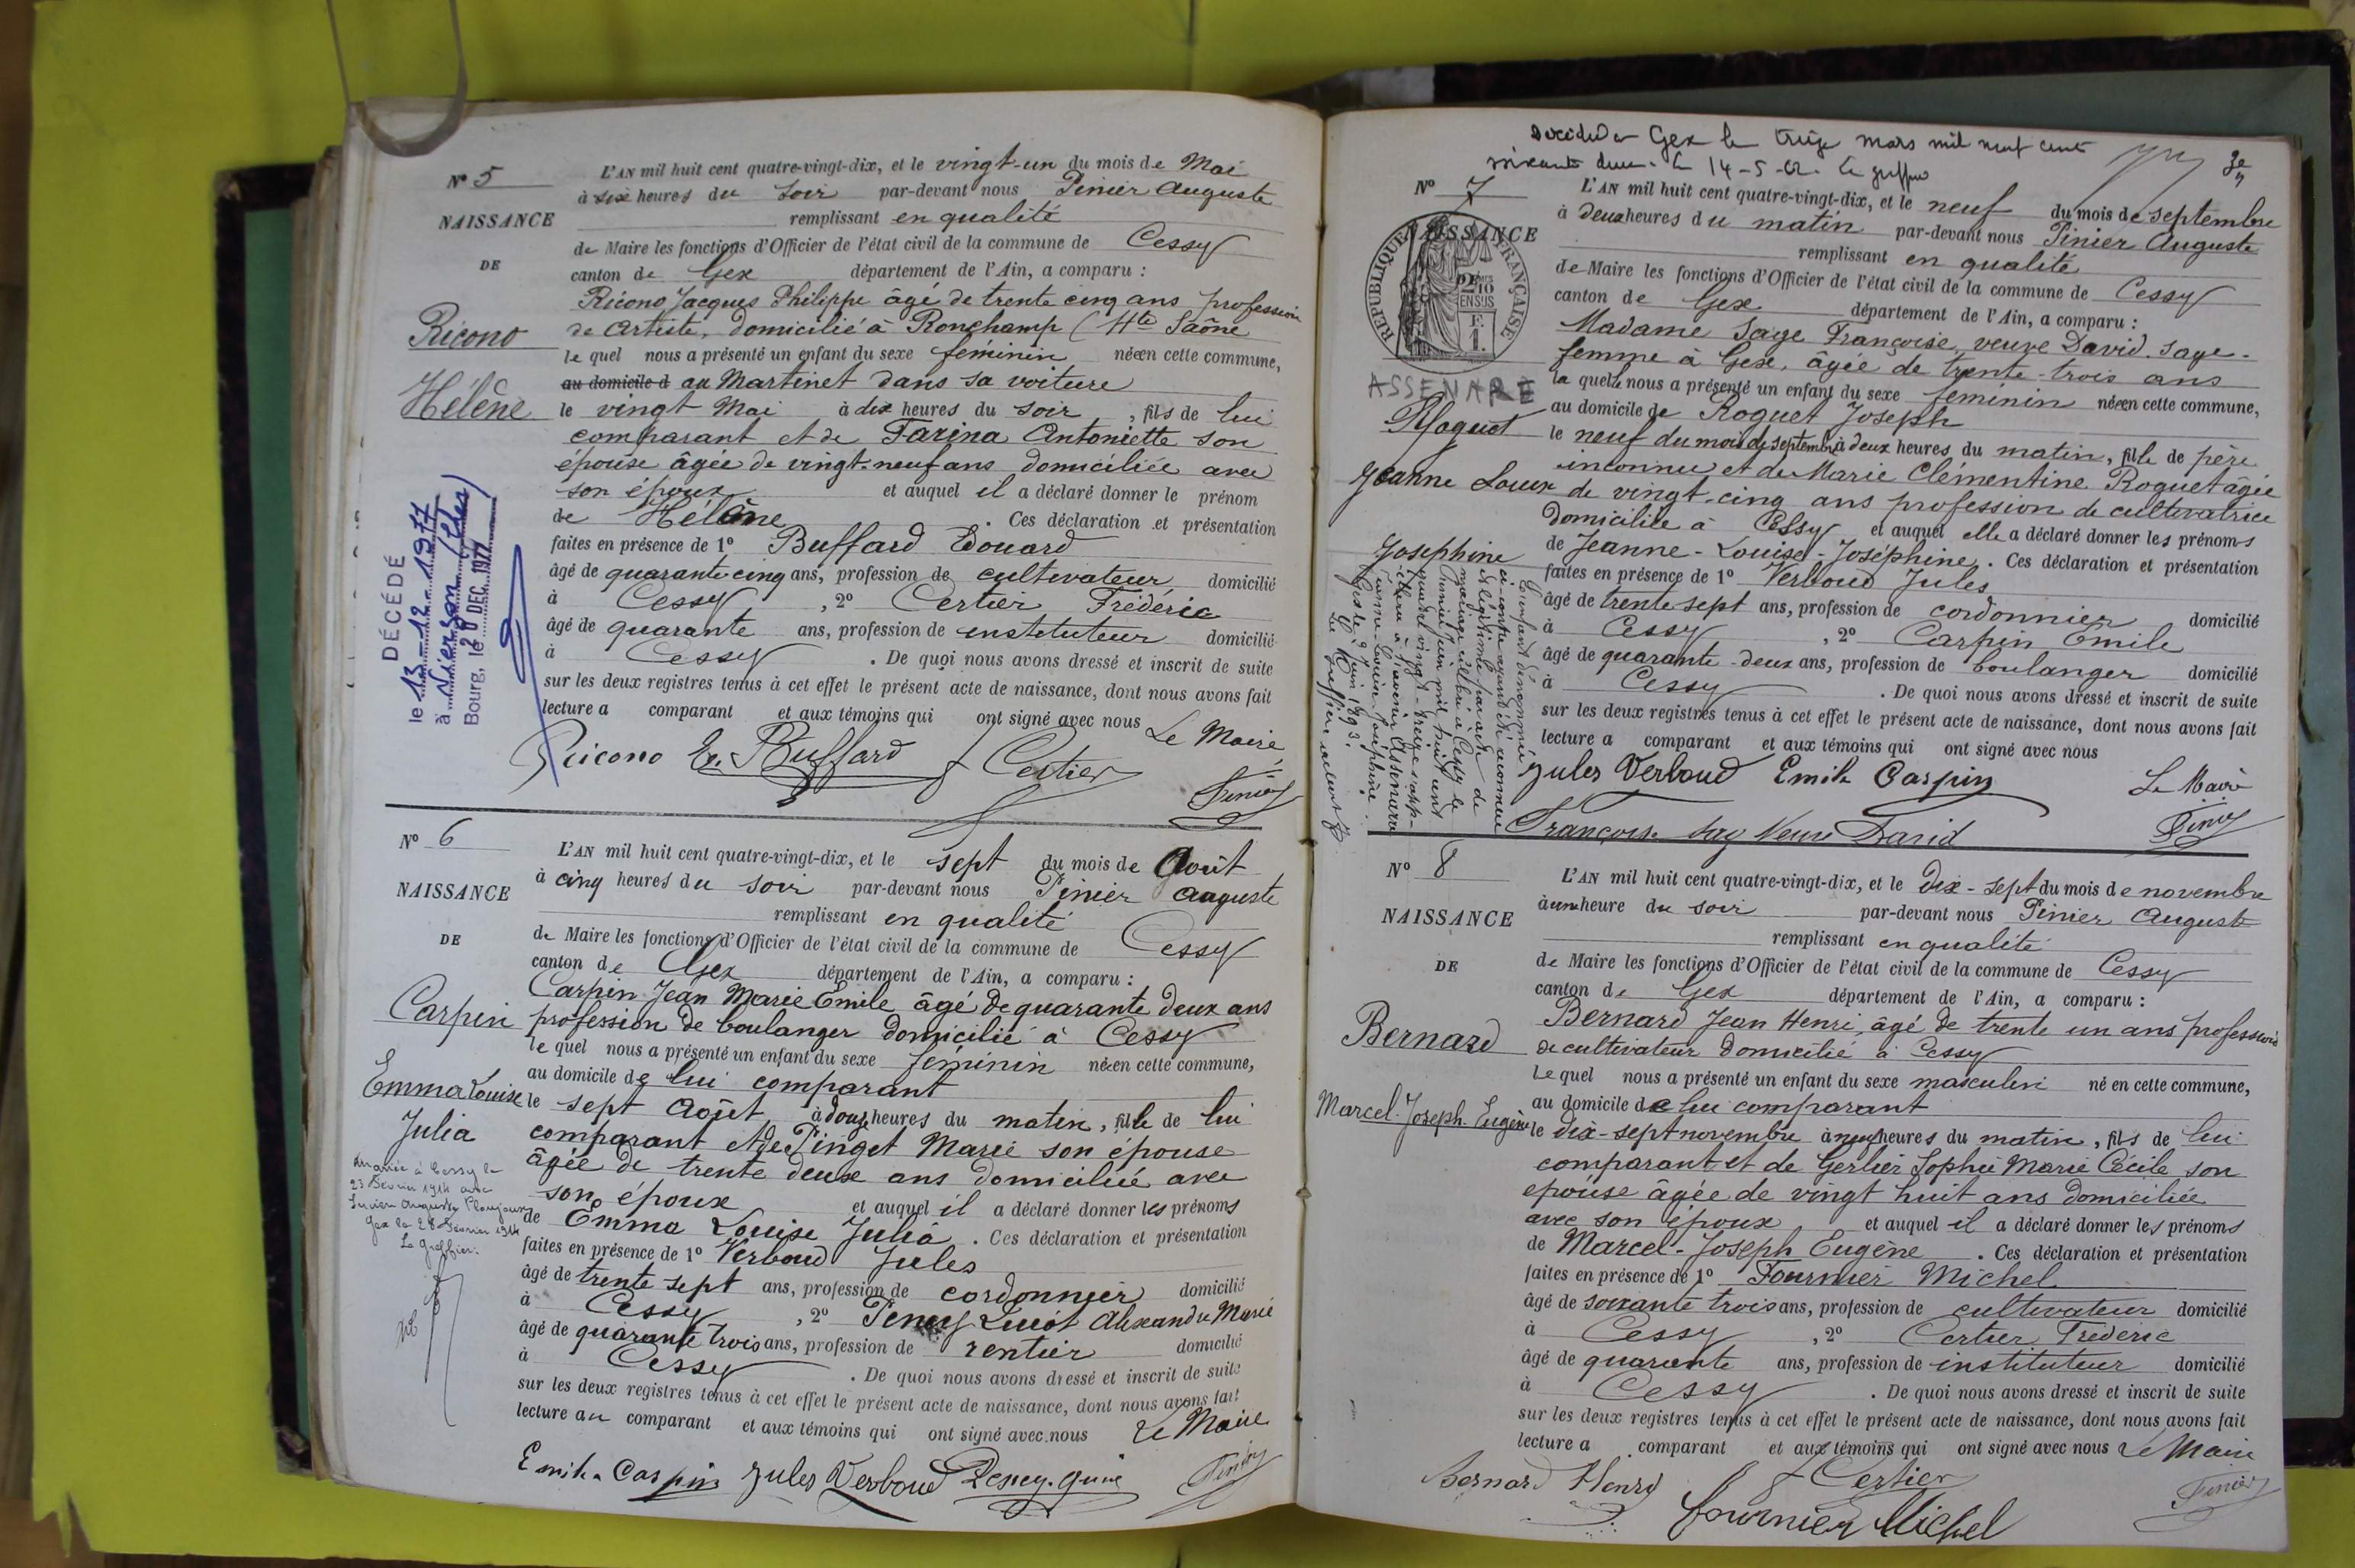 N° 5
NAISSANCE
DE
Ricono
Hélène
DÉCÉDÉ
le 13-12-1977
à Vierzon (Cher)
Bourg, le 20 DEC. 1977
L'AN mil huit cent quatre-vingt-dix, et le vingt-un du mois de Mai
à six heures du soir par-devant nous Pinier Auguste
remplissant en qualité
de Maire les fonctions d'Officier de l'état civil de la commune de Cessy
canton de Gex département de l'Ain, a comparu :
Ricono Jacques Philippe âgé de trente cinq ans profession
de artiste, domicilié à Ronchamp (Hte Saône
le quel nous a présenté un enfant du sexe féminin née en cette commune,
au domicile d au Martinet dans sa voiture
le vingt Mai à dix heures du soir, fils de lui
comparant et de Farina Antoniette son
épouse âgée de vingt-neuf ans domiciliée avec
son époux et auquel il a déclaré donner le prénom
de Hélène. Ces déclaration et présentation
faites en présence de 1° Buffard Edouard
âgé de quarante-cinq ans, profession de cultivateur domicilié
à Cessy, 2° Certier Frédéric
âgé de quarante ans, profession de instituteur domicilié
à Cessy. De quoi nous avons dressé et inscrit de suite
sur les deux registres tenus à cet effet le présent acte de naissance, dont nous avons fait
lecture a comparant et aux témoins qui ont signé avec nous Le Maire
Ricono Ed. Buffard Certier
Pinier
N° 6
NAISSANCE
DE
Carpin
Emma Louise
Julia
Mariée à Cessy le
23 Février 1914 avec
Gex le 28 Février 1914
Le Greffier.
L'AN mil huit cent quatre-vingt-dix, et le sept du mois de Août
à cinq heures du soir par-devant nous Pinier Auguste
remplissant en qualité
de Maire les fonctions d'Officier de l'état civil de la commune de Cessy
canton de Gex département de l'Ain, a comparu :
Carpin Jean Marie Emile âgé de quarante deux ans
profession de boulanger domicilié à Cessy
le quel nous a présenté un enfant du sexe féminin née en cette commune,
au domicile de lui comparant
le sept Août à douze heures du matin, fille de lui
comparant et de Pinget Marie son épouse
âgée de trente deux ans domiciliée avec
son époux et auquel il a déclaré donner les prénoms
de Emma Louise Julia. Ces déclaration et présentation
faites en présence de 1° Verboud Jules
âgé de trente sept ans, profession de cordonnier domicilié
à Cessy, 2° Alexandre Marie
âgé de quarante trois ans, profession de rentier domicilié
à Cessy. De quoi nous avons dressé et inscrit de suite
sur les deux registres tenus à cet effet le présent acte de naissance, dont nous avons fait
lecture au comparant et aux témoins qui ont signé avec nous Le Maire
Emile Carpin Jules Verboud
Pinier
Décédée à Gex le treize mars mil neuf cent
soixante deux. Le 14-5-62. Le greffier
N° 7
NAISSANCE
REPUBLIQUE FRANÇAISE
ASSENARE
Roguet
Jeanne Louise
Josephine
L'enfant dénommé
ci-contre a été reconnu
et légitimé par acte de
mariage célébré à Cessy le
Gex le 9 Juin 1893.
L'AN mil huit cent quatre-vingt-dix, et le neuf du mois de septembre
à deux heures du matin par-devant nous Pinier Auguste
remplissant en qualité
de Maire les fonctions d'Officier de l'état civil de la commune de Cessy
canton de Gex département de l'Ain, a comparu :
Madame Sage Françoise veuve David sage-
femme à Gex, âgée de trente-trois ans
la quelle nous a présenté un enfant du sexe féminin née en cette commune,
au domicile de Roguet Joseph
le neuf du mois de septembre à deux heures du matin, fille de père
inconnu et de Marie Clémentine Roguet âgée
de vingt-cinq ans profession de cultivatrice
domiciliée à Cessy et auquel elle a déclaré donner les prénoms
de Jeanne-Louise-Joséphine. Ces déclaration et présentation
faites en présence de 1° Verboud Jules
âgé de trente sept ans, profession de cordonnier domicilié
à Cessy, 2° Carpin Emile
âgé de quarante-deux ans, profession de boulanger domicilié
à Cessy. De quoi nous avons dressé et inscrit de suite
sur les deux registres tenus à cet effet le présent acte de naissance, dont nous avons fait
lecture a comparant et aux témoins qui ont signé avec nous
Jules Verboud Emile Carpin Le Maire
Françoise Sag Veuve David Pinier
N° 8
NAISSANCE
DE
Bernard
Marcel-Joseph Eugène
L'AN mil huit cent quatre-vingt-dix, et le dix-sept du mois de novembre
à une heure du soir par-devant nous Pinier Auguste
remplissant en qualité
de Maire les fonctions d'Officier de l'état civil de la commune de Cessy
canton de Gex département de l'Ain, a comparu :
Bernard Jean Henri, âgé de trente un ans profession
de cultivateur domicilié à Cessy
le quel nous a présenté un enfant du sexe masculin né en cette commune,
au domicile de lui comparant
le dix-sept novembre à neuf heures du matin, fils de lui
comparant et de Gerlier Sophie Marie Cécile son
épouse âgée de vingt huit ans domiciliée
avec son époux et auquel il a déclaré donner les prénoms
de Marcel-Joseph Eugène. Ces déclaration et présentation
faites en présence de 1° Fournier Michel
âgé de soixante trois ans, profession de cultivateur domicilié
à Cessy, 2° Certier Frédéric
âgé de quarante ans, profession de instituteur domicilié
à Cessy. De quoi nous avons dressé et inscrit de suite
sur les deux registres tenus à cet effet le présent acte de naissance, dont nous avons fait
lecture a comparant et aux témoins qui ont signé avec nous Le Maire
Bernard Henry Certier
Fournier Michel Pinier